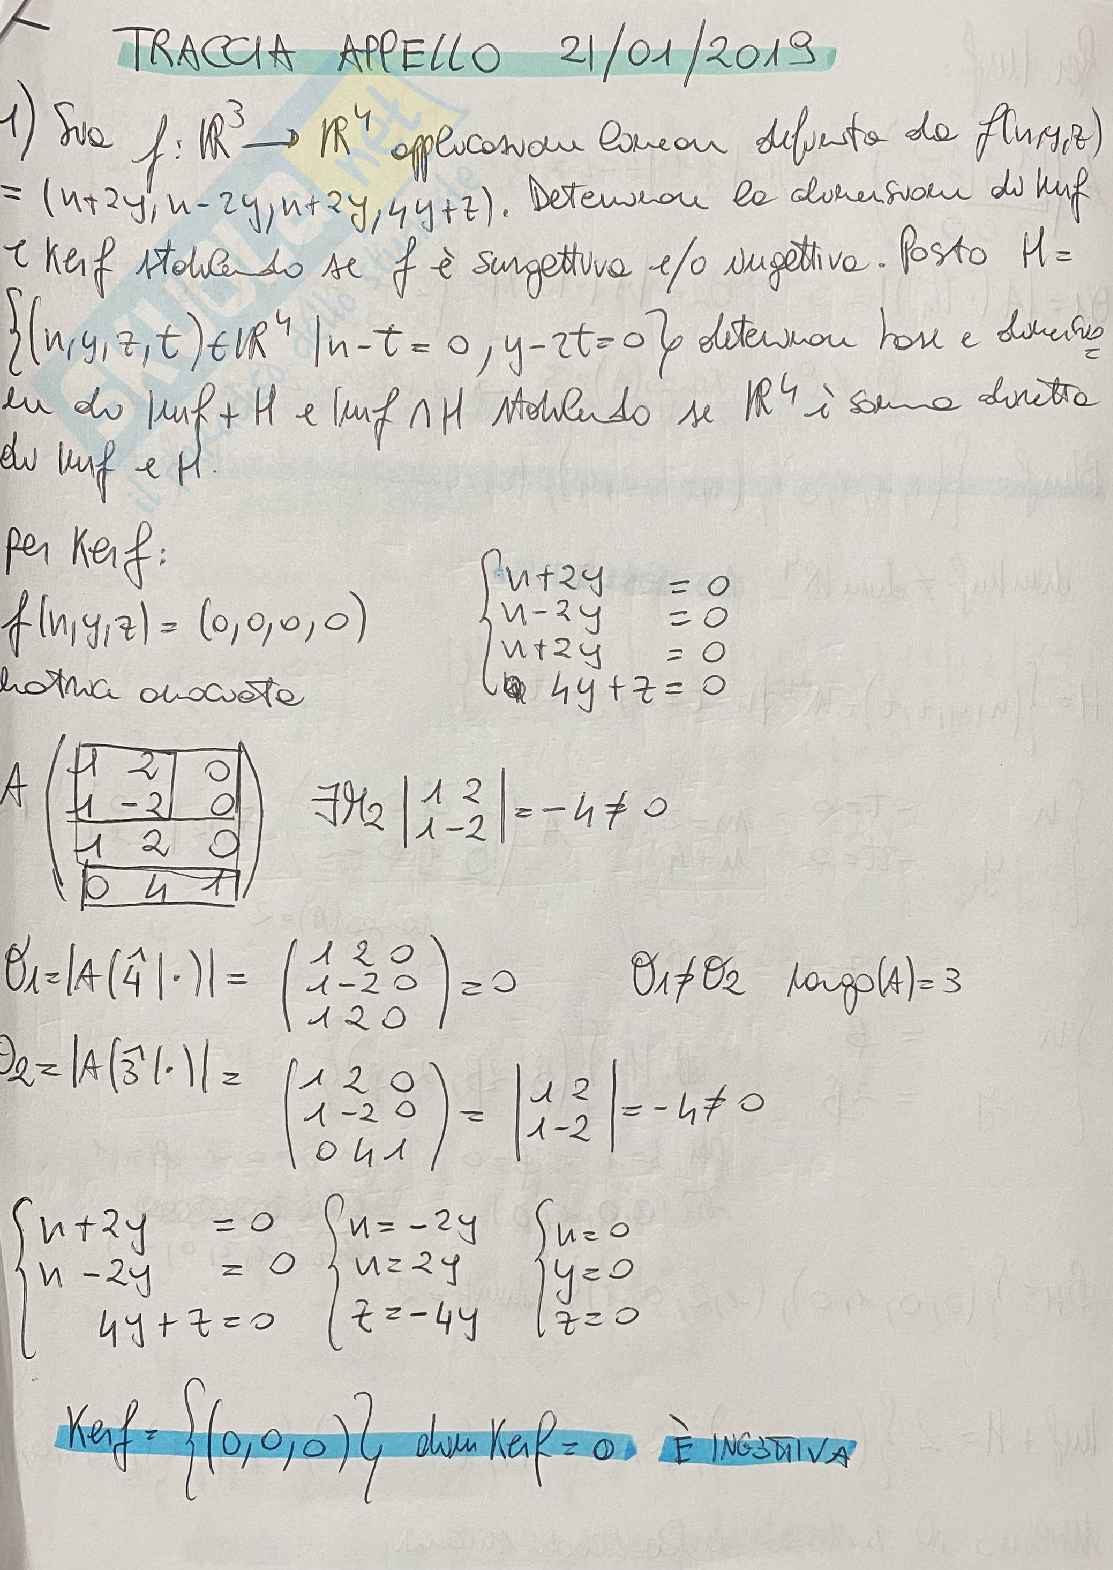 TRACCIA APPELLO 21/01/2019
1) Sia f: ℝ³ → ℝ⁴ applicazione lineare definita da f(x,y,z)
= (x+2y, x-2y, x+2y, 4y+z). Determinare la dimensione di Imf
e Kerf stabilendo se f è surgettiva e/o ingettiva. Posto H =
{(x,y,z,t) ∈ ℝ⁴ | x-t=0, y-2t=0} determinare base e dimensio=
ne di Imf + H e Imf ∩ H stabilendo se ℝ⁴ è somma diretta
di Imf e H.
per Kerf:
f(x,y,z) = (0,0,0,0)
{ x+2y = 0
x-2y = 0
x+2y = 0
4y+z = 0
matrice associata
A ( 1 2 0
1 -2 0
1 2 0
0 4 1 )
∃M2 | 1 2
1 -2 | = -4 ≠ 0
O1 = |A(4̂|·)| = ( 1 2 0
1 -2 0
1 2 0 ) = 0
O1 ≠ O2 rango(A) = 3
O2 = |A(3̂|·)| = ( 1 2 0
1 -2 0
0 4 1 ) = | 1 2
1 -2 | = -4 ≠ 0
{ x+2y = 0
x-2y = 0
4y+z = 0
{ x = -2y
x = 2y
z = -4y
{ x = 0
y = 0
z = 0
Kerf = {(0,0,0)} dim Kerf = 0 È INGETTIVA
SKUOLA.net